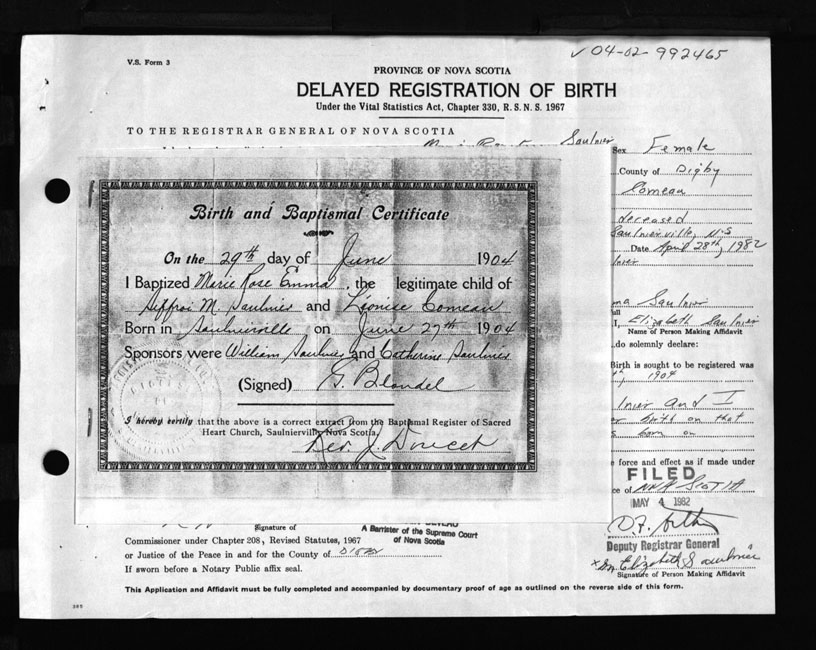 V.S. Form 3
✓ 04-02-992465
PROVINCE OF NOVA SCOTIA
DELAYED REGISTRATION OF BIRTH
Under the Vital Statistics Act, Chapter 330, R. S. N. S. 1967
TO THE REGISTRAR GENERAL OF NOVA SCOTIA
Saulnier Sex Female
County of Digby
Comeau
deceased
Saulnierville, N.S
Date April 28th, 1982
Saulnier
I, Elizabeth Saulnier
Name of Person Making Affidavit
do solemnly declare:
Birth is sought to be registered was
1904
and I
birth on that
born on
force and effect as if made under
Birth and Baptismal Certificate
On the 29th day of June 1904
I Baptized Marie Rose Emma, the legitimate child of
Siffroi M. Saulnier and Léonise Comeau
Born in Saulnierville on June 27th 1904
Sponsors were William Saulnier and Catherine Saulnier
(Signed) G. Blondel
I hereby certify that the above is a correct extract from the Baptismal Register of Sacred
Heart Church, Saulnierville, Nova Scotia.
Rev J. Doucet
FILED
MAY 4 1982
Deputy Registrar General
Elizabeth S Saulnier
Signature of Person Making Affidavit
Signature of
A Barrister of the Supreme Court
of Nova Scotia
Commissioner under Chapter 208, Revised Statutes, 1967
or Justice of the Peace in and for the County of Digby
If sworn before a Notary Public affix seal.
This Application and Affidavit must be fully completed and accompanied by documentary proof of age as outlined on the reverse side of this form.